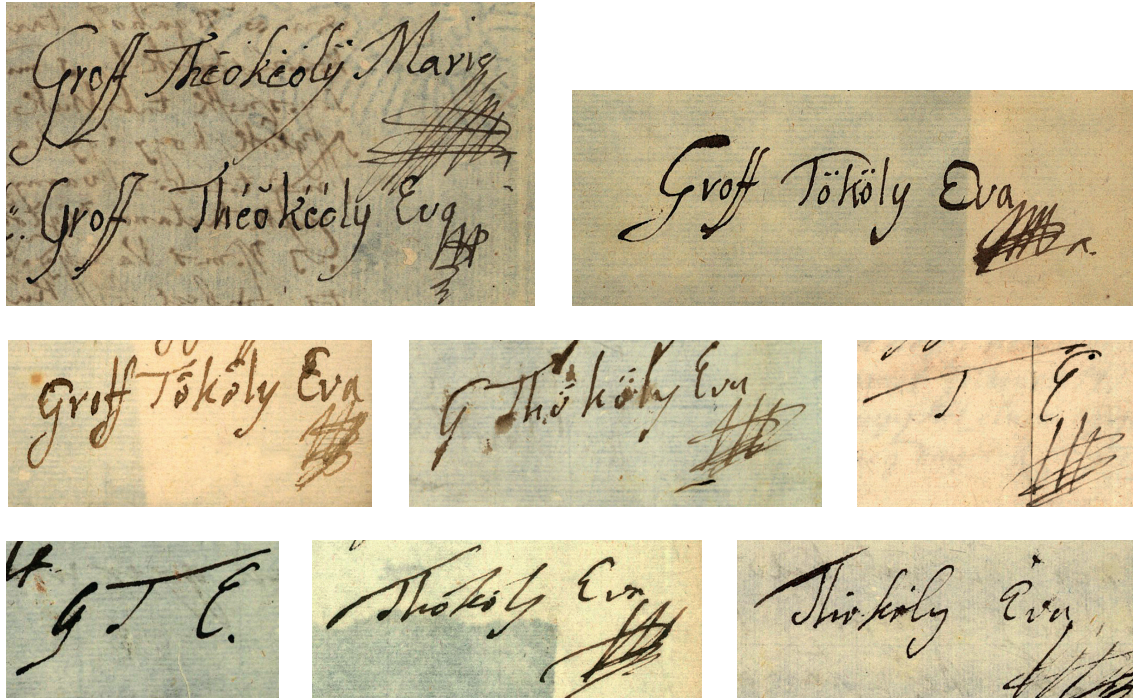 Groff Théökéölÿ Marie
Groff Théökéöly Eva
Groff Tököly Eva
Groff Tököly Eva
G Thököly Eva
T E
G T E.
Thököly Eva
Thököly Eva